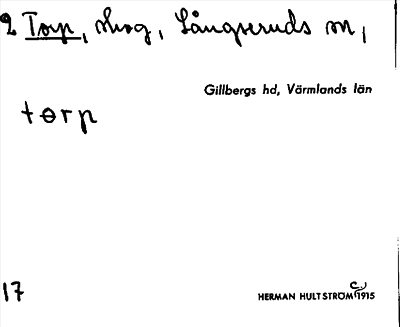 2 Torp, skog, Långseruds sn,
Gillbergs hd, Värmlands län
tɵrp
17
HERMAN HULTSTRÖM c. 1915